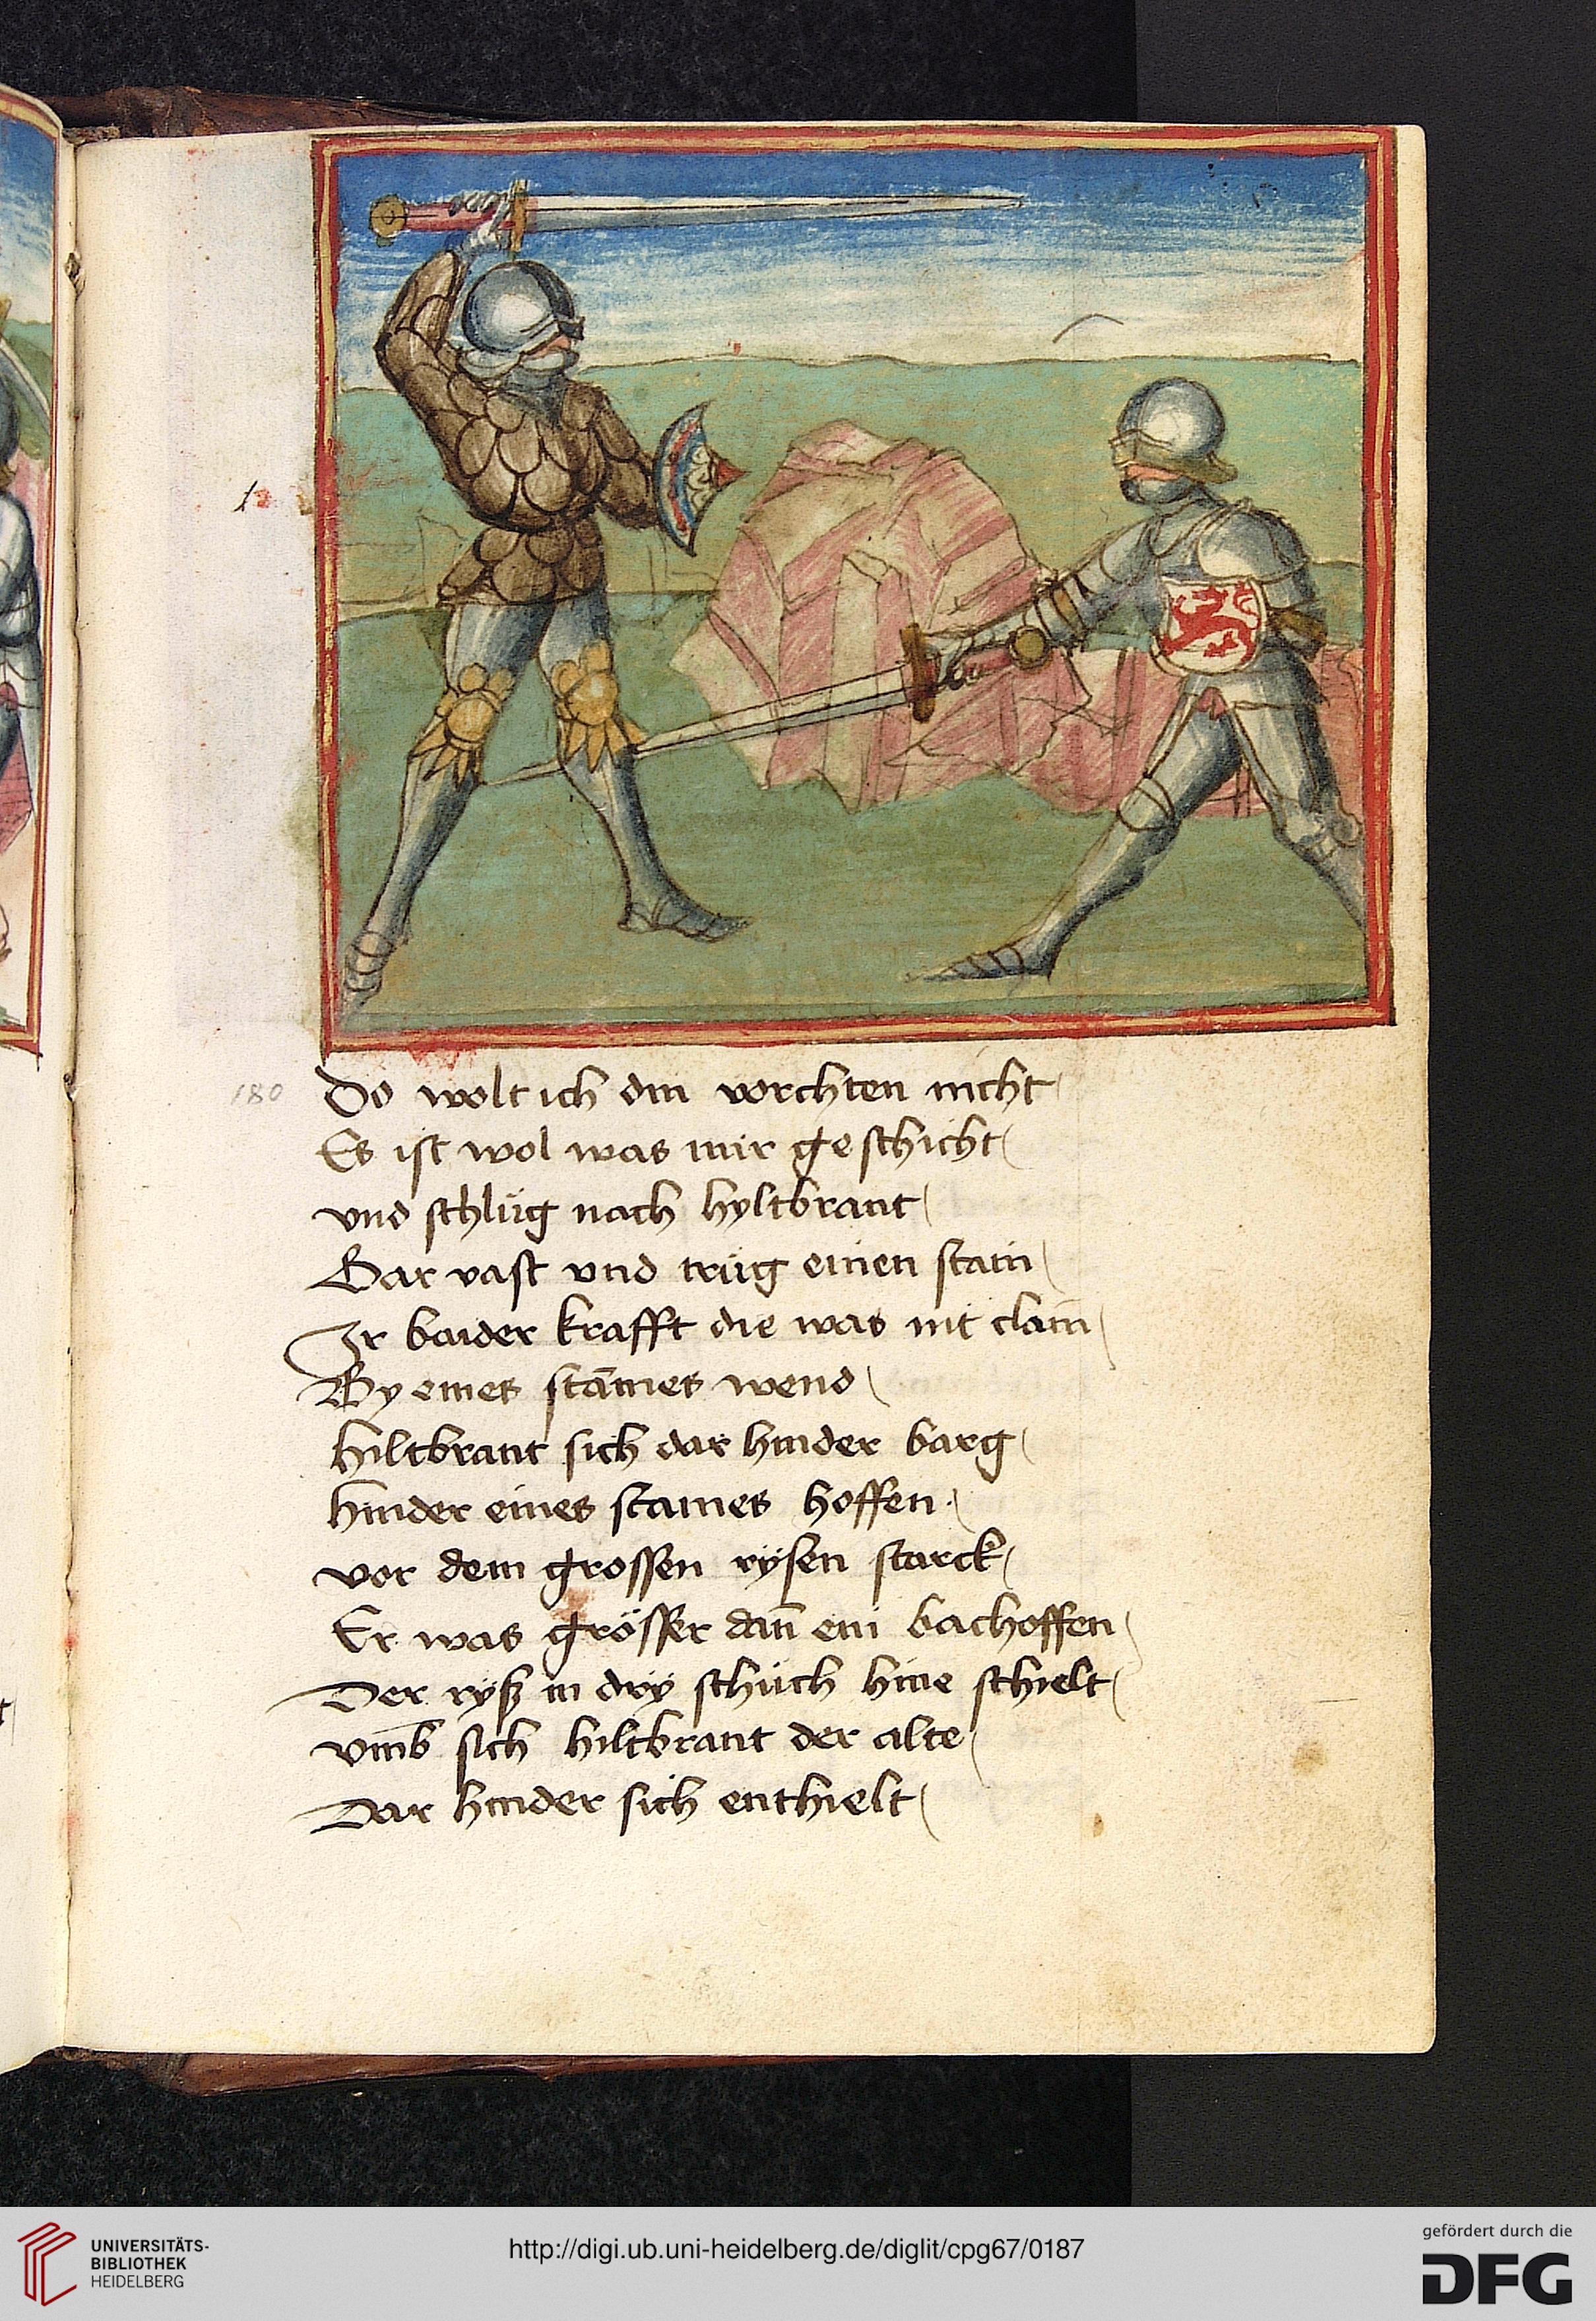 1
180
Do wolt ich din vorchten nicht
Es ist wol was mir geschicht
vnd schlüg nach hyltbrant
Gar vast vnd trüg einen stain
Ir baider krafft die was nit clain
By eines staines wend
hiltbrant sich dar hinder barg
hinder eines staines hoffen
vor dem grossen rysen starck
Er was grösser dañ ein bachoffen
Der ryß in dry schüch hine schielt
vmb sich hiltbrant der alte
Dar hinder sich enthielt
UNIVERSITÄTS-
BIBLIOTHEK
HEIDELBERG
http://digi.ub.uni-heidelberg.de/diglit/cpg67/0187
gefördert durch die
DFG